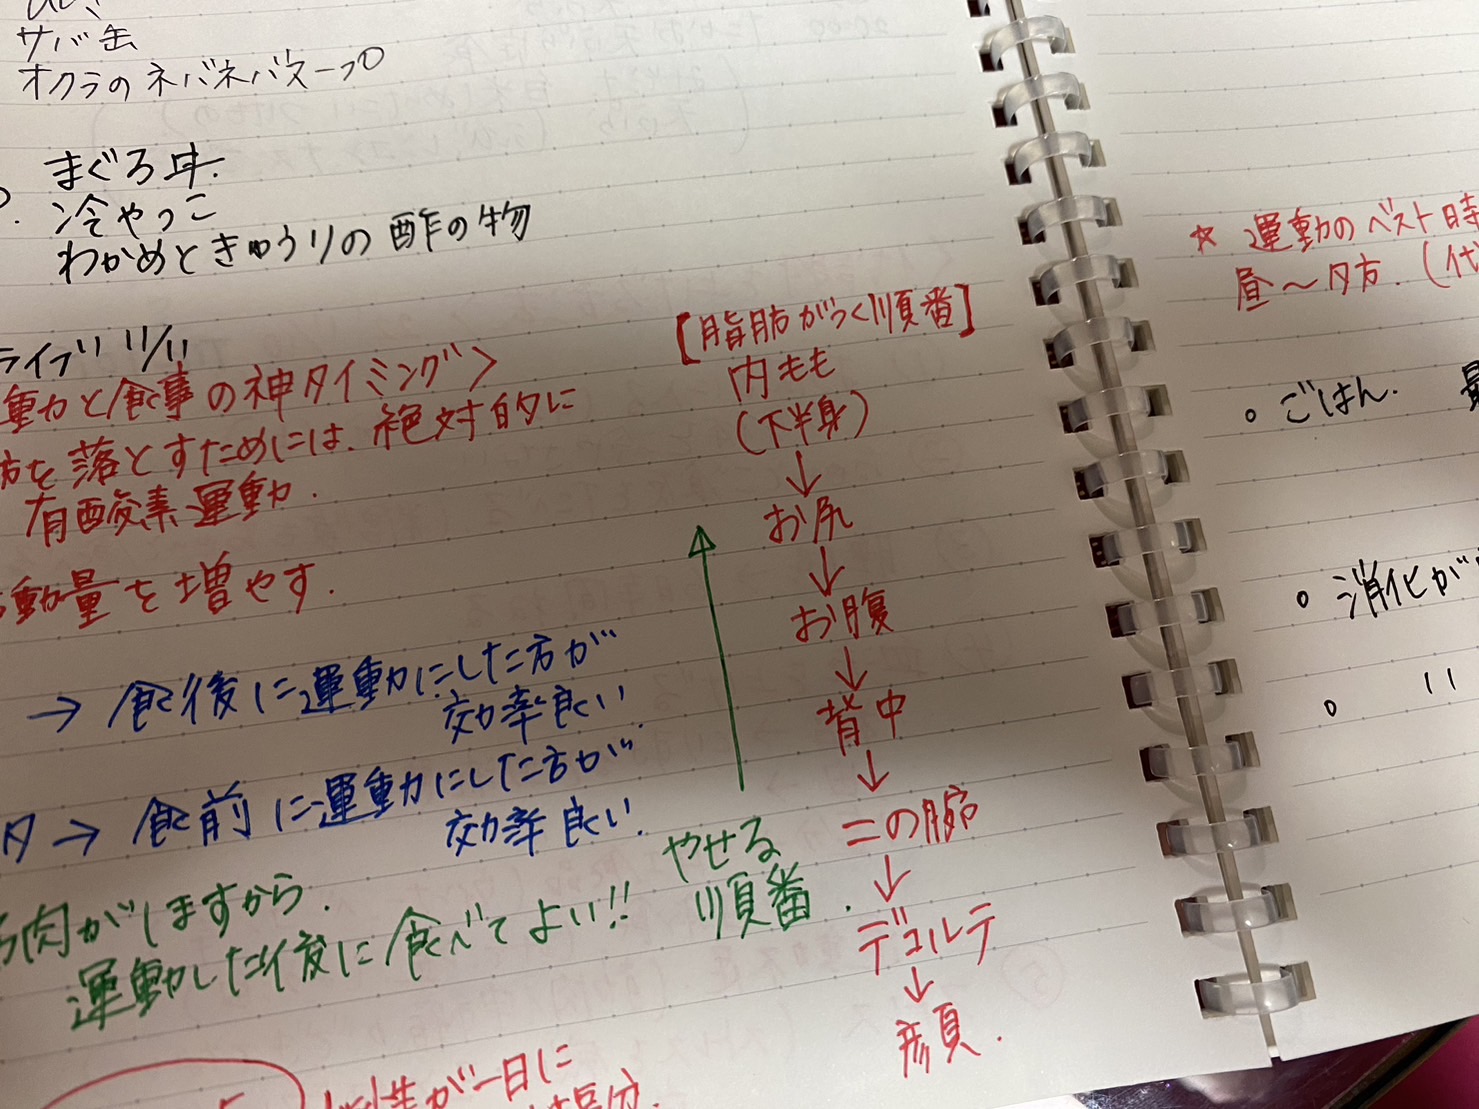 サバ缶
オクラのネバネバスープ
まぐろ丼.
冷やっこ
わかめときゅうりの酢の物
ライブ 11/11
動と食事の神タイミング>
肪を落とすためには、絶対的に
有酸素運動.
動量を増やす.
→ 食後に運動にした方が
効率良い.
夕→ 食前に運動にした方が
効率良い.
肉がしますから.
運動した後に食べてよい!!
性が一日に
塩分.
【脂肪がつく順番】
内もも
(下半身)
↓
お尻
↓
お腹
↓
背中
↓
二の腕
↓
デコルテ
↓
顔.
やせる
順番.
☆ 運動のベスト時
昼～夕方.(代
・ごはん.
・消化が
・ 〃